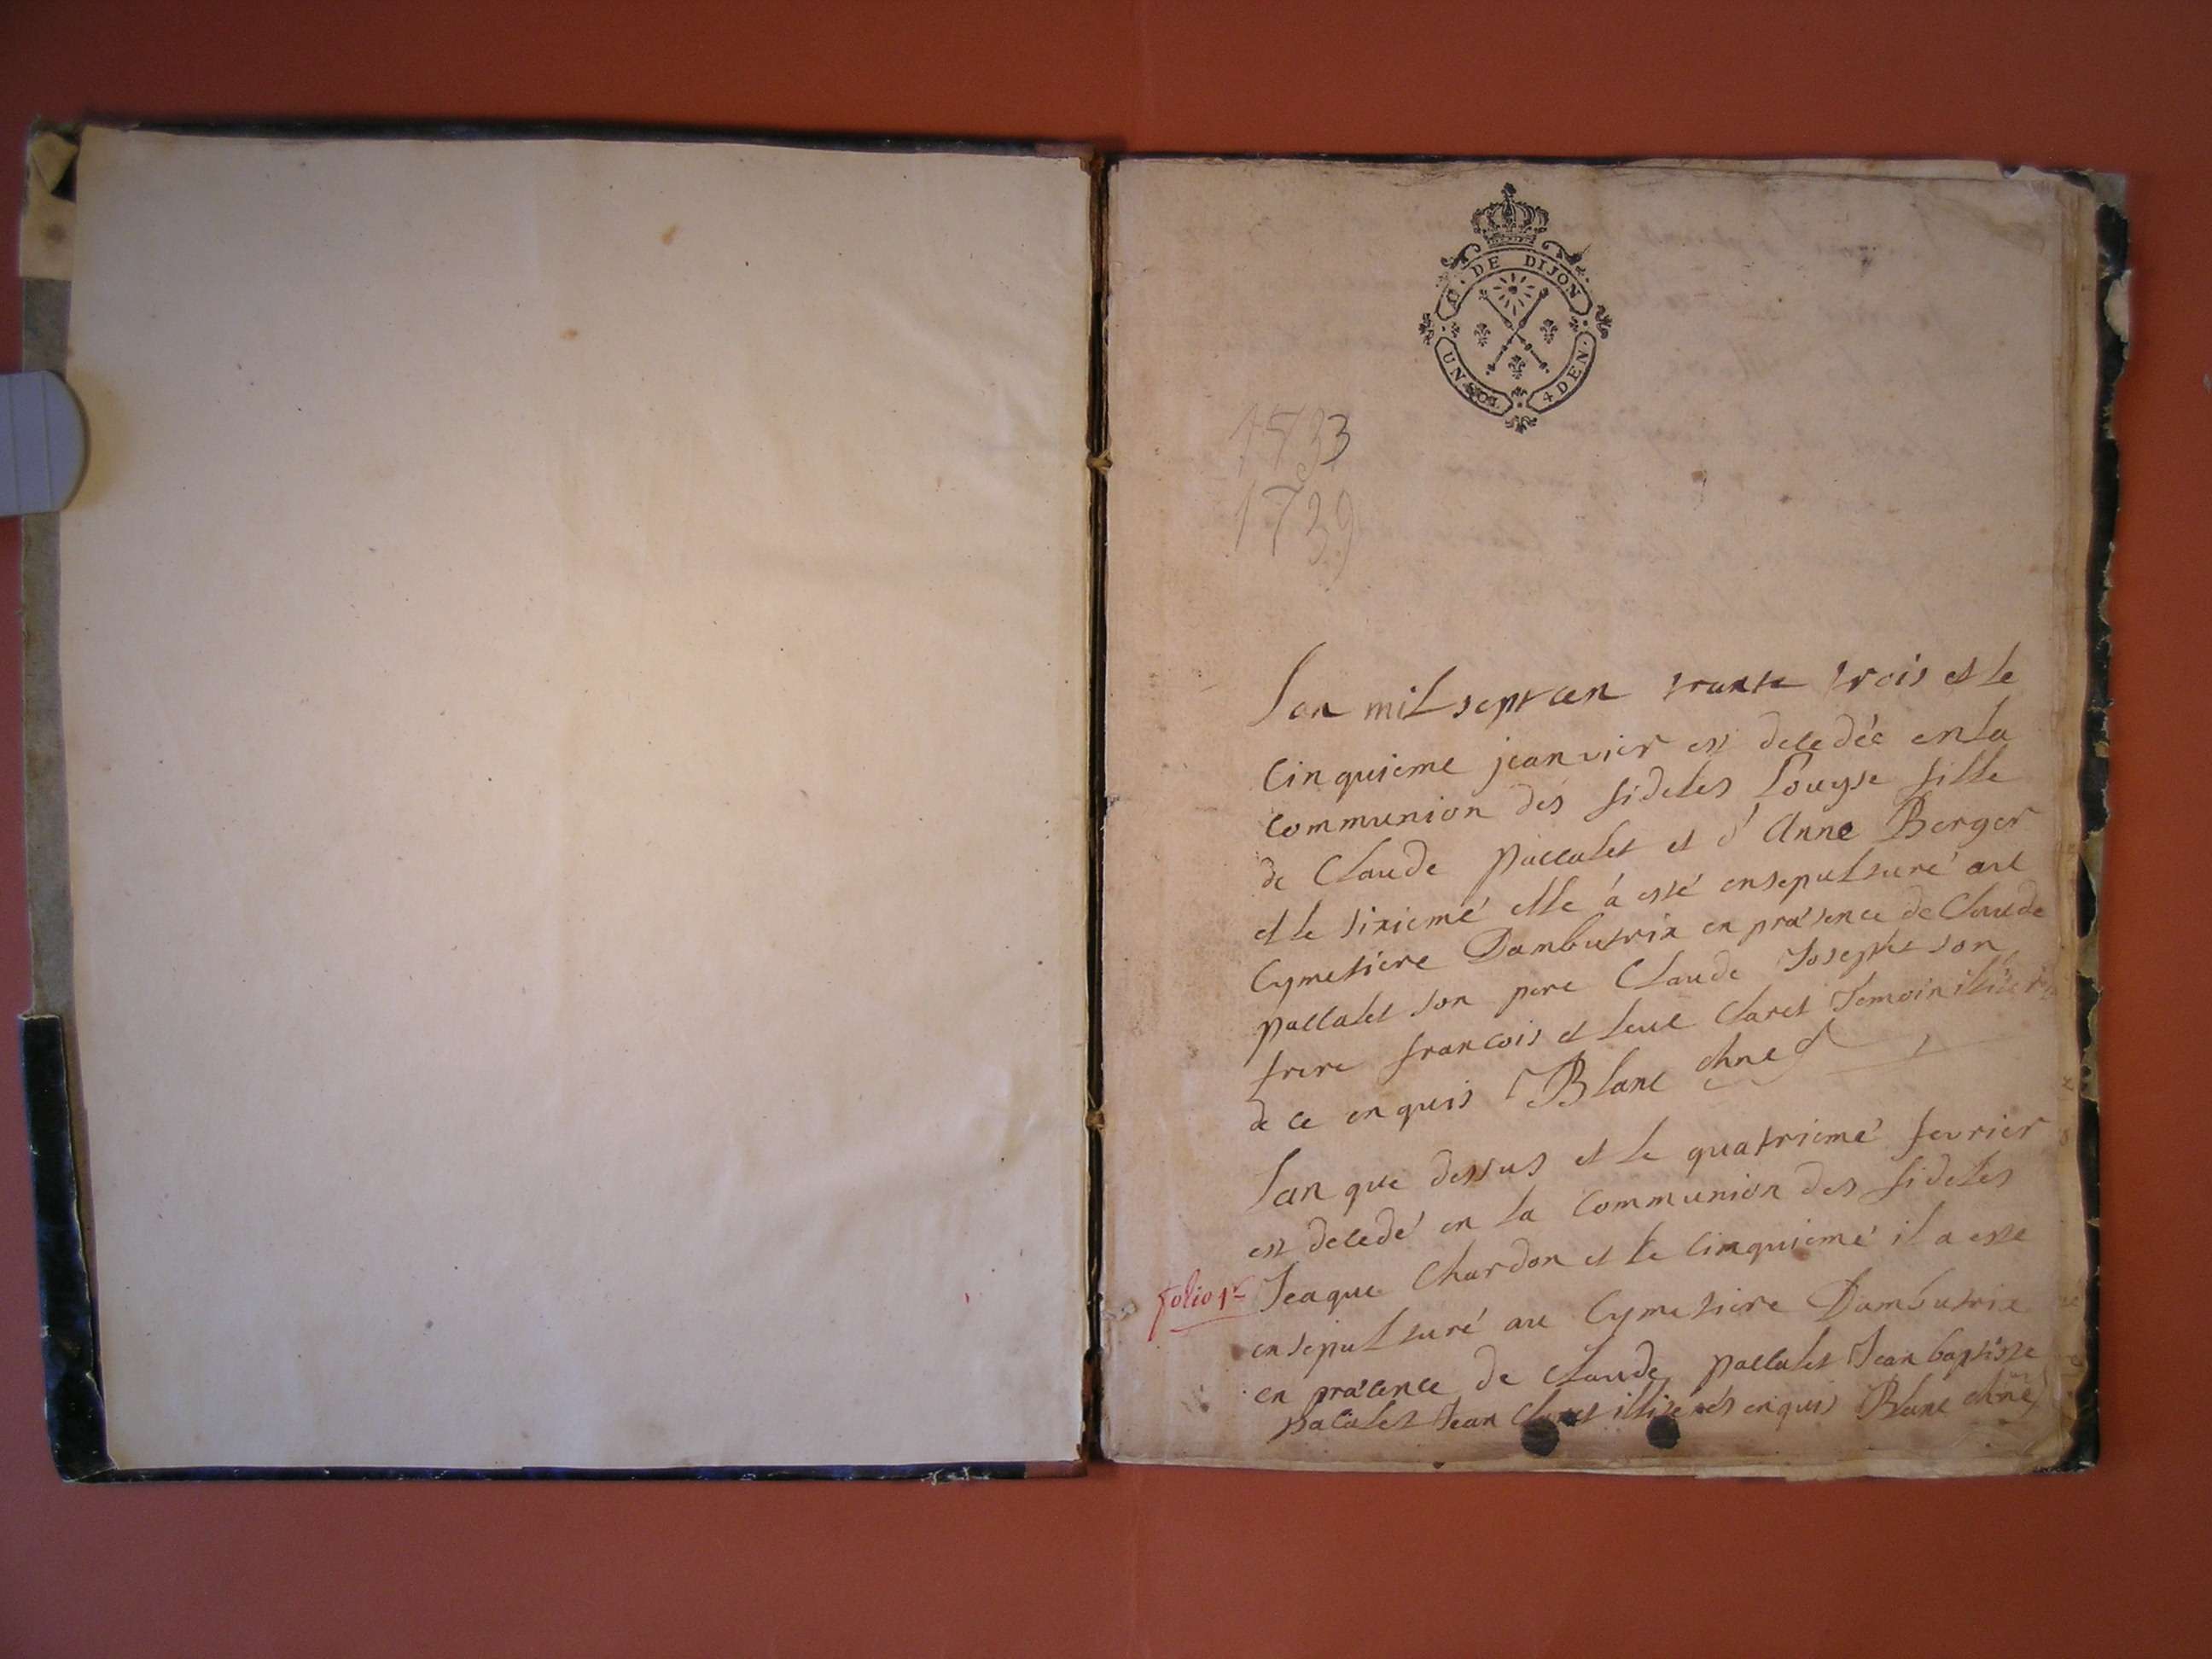 G. DE DIJON
UN SOL 4 DEN.
1733
1739
lan mil sept cen trante trois et le
Cinquieme jeanvier est decedée en la
Communion des fideles Louyse fille
de Claude paccalet et d'Anne Berger
et le sixiemé elle á esté ensepulturé aue
Cymetiere Dambutrix en præsence de Claude
paccalet son pere Claude Josephe son
frere francois et leue Claret Temoin
de ce enquis Blanc chne
lan que dessus et le quatriemé fevrier
est decedé en la Communion des fideles
folio 1er
Jeaque Chardon et le Cinquiemé il a esté
ensepulturé aue Cymetiere Dambutrix
en præcence de Claude paccalet Jean baptiste
pacalet Jean Claret illiterés enquis Blanc chne